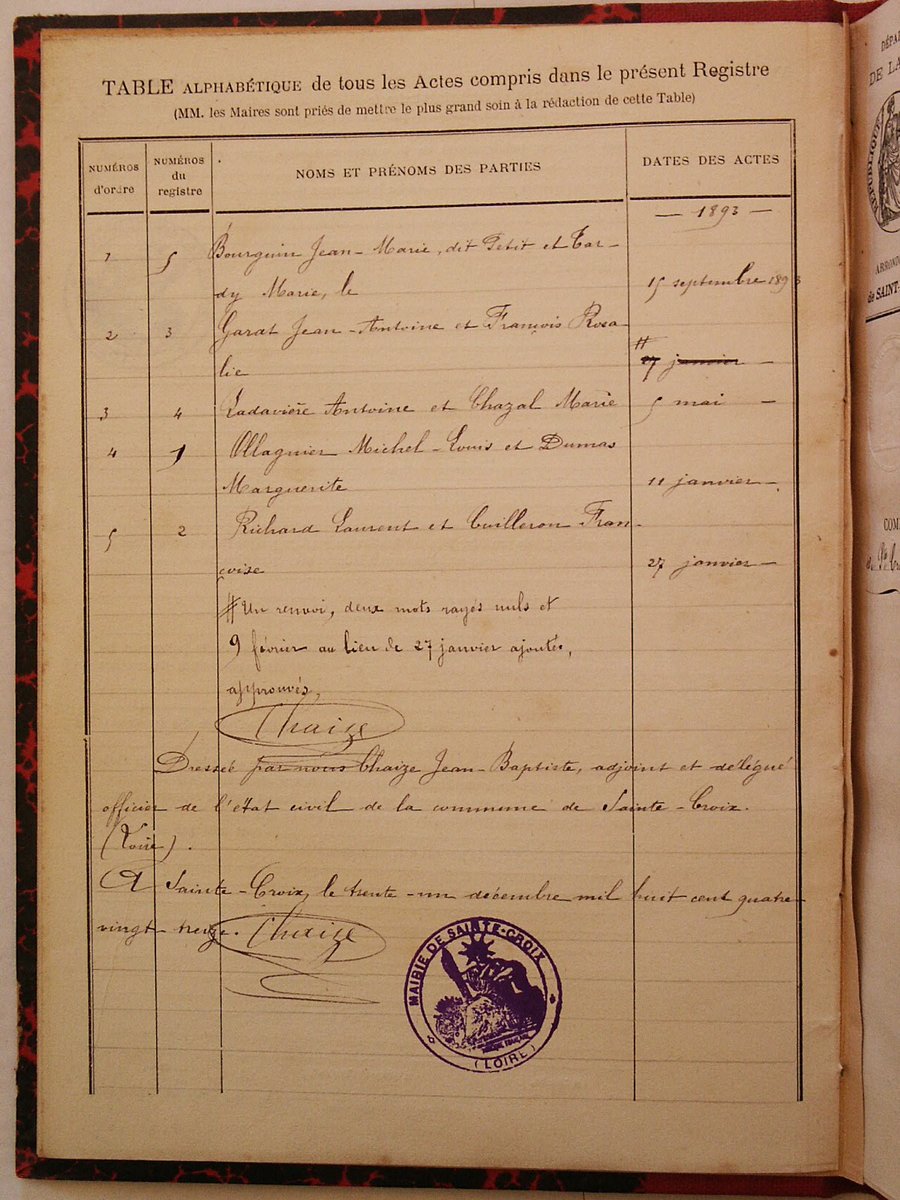 TABLE ALPHABÉTIQUE de tous les Actes compris dans le présent Registre
(MM. les Maires sont priés de mettre le plus grand soin à la rédaction de cette Table)
NUMÉROS d'ordre NUMÉROS du registre NOMS ET PRÉNOMS DES PARTIES DATES DES ACTES
— 1893 —
1 5 Bourguin Jean-Marie, dit Petit et Tar-
dy Marie, le 15 septembre 1893
2 3 Garat Jean-Antoine et François Rosa-
lie # 27 janvier —
3 4 Ladavière Antoine et Chazal Marie 5 mai —
4 1 Ollagnier Michel-Louis et Dumas
Marguerite 11 janvier —
5 2 Richard Laurent et Cuilleron Fran-
çoise 27 janvier —
# Un renvoi, deux mots rayés nuls et
9 février au lieu de 27 janvier ajoutés,
approuvés,
Chaize
Dressée par nous Chaize Jean-Baptiste, adjoint et délégué
officier de l'état civil de la commune de Sainte-Croix.
(Loire).
A Sainte-Croix, le trente-un décembre mil huit cent quatre
vingt-treize. Chaize
MAIRIE DE SAINTE-CROIX
(LOIRE)
DÉPA
DE LA
RÉPUBLIQUE
ARRONDI
de SAINT-
COM